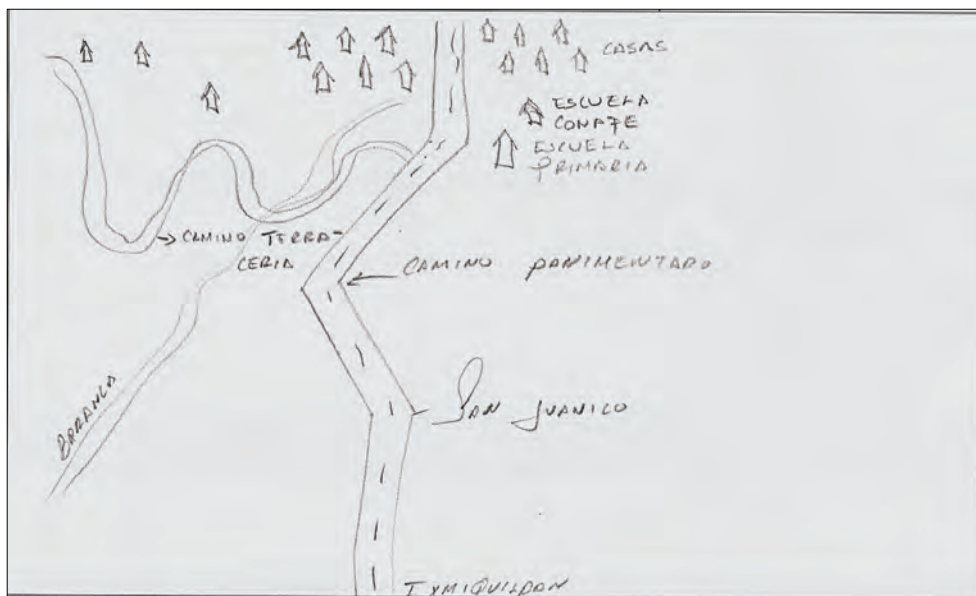 CASAS
ESCUELA
CONAFE
ESCUELA
PRIMARIA
→ CAMINO TERRA-
CERIA
CAMINO PANIMENTADO
BARRANCA
SAN JUANICO
IXMIQUILPAN